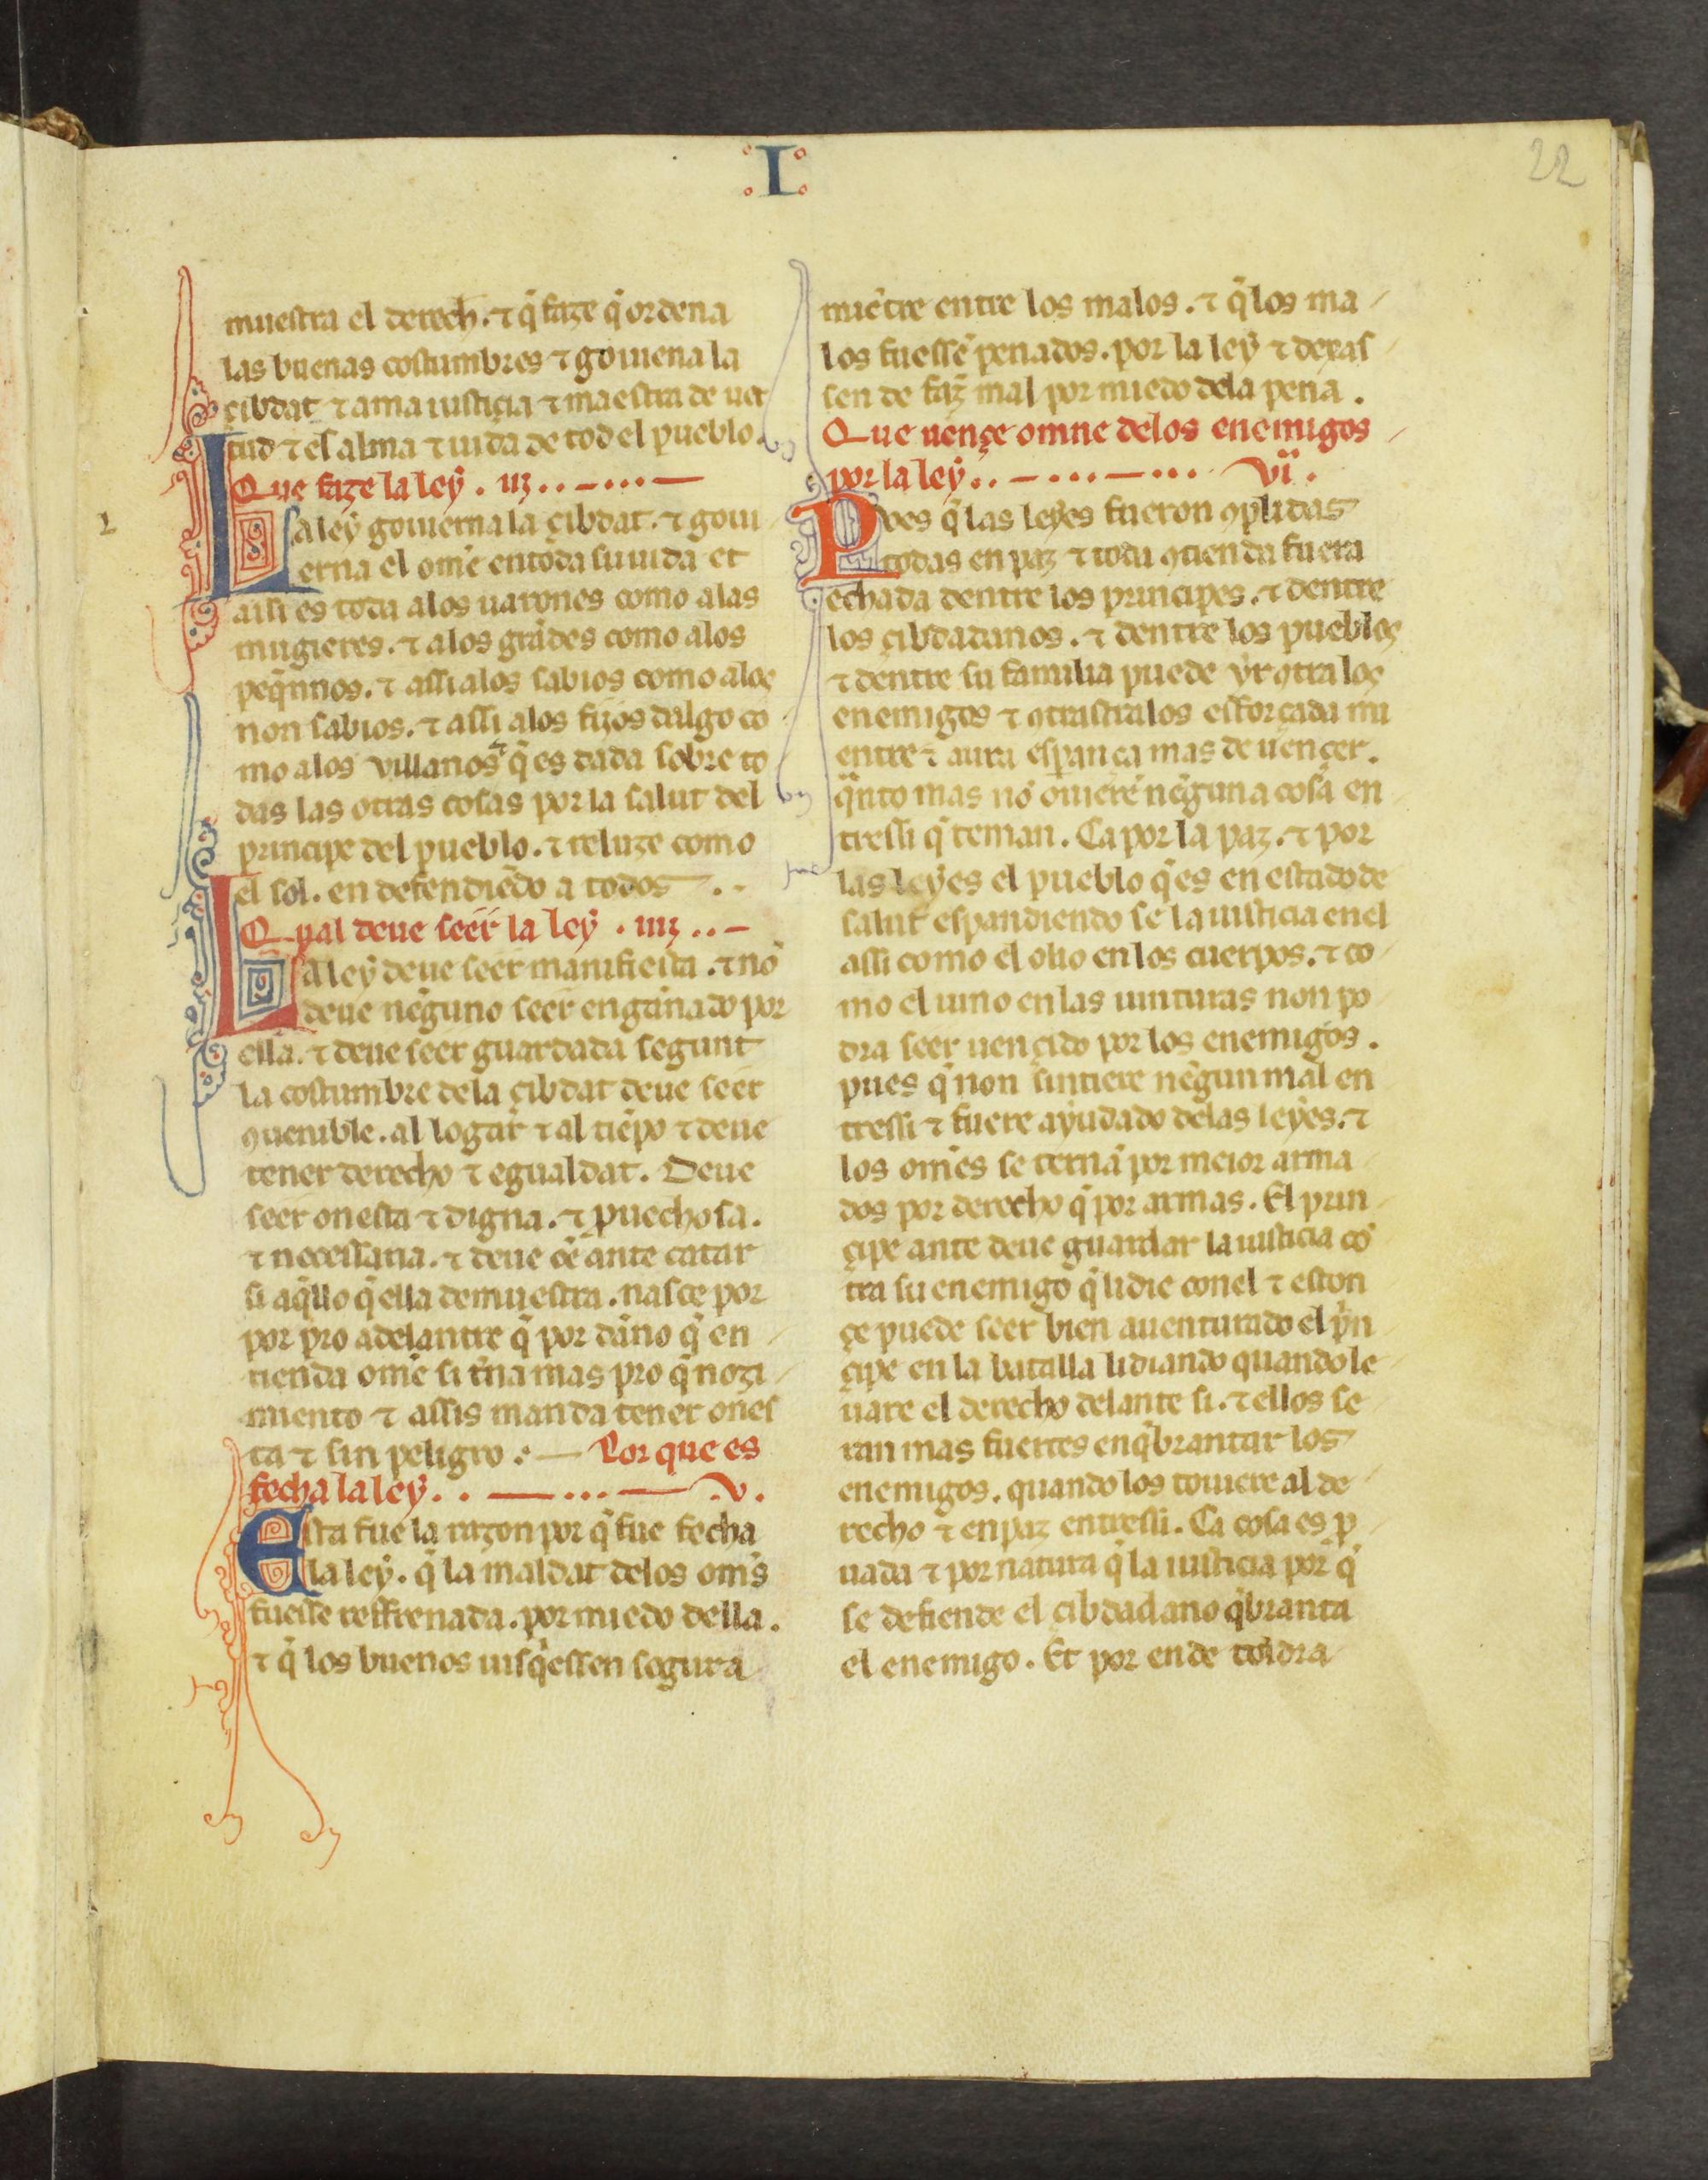 I
22
muestra el derech. ⁊ q̄ faze q̄ ordena
las buenas costumbres ⁊ gouiena la
çibdat ⁊ ama iustiçia ⁊ maestra de uer
tud ⁊ es alma ⁊ uida de tod el pueblo.
Que faze la ley. iij..-...-
La ley gouierna la çibdat. ⁊ goui
erna el om̄e en toda su uida et
assi es toda a los uarones como a las
mugieres. ⁊ a los grãdes como a los
peq̄nnos. ⁊ assi a los sabios como a los
non sabios. ⁊ assi a los fijos dalgo co
mo a los villanos ⁊ q̄ es dada sobre to
das las otras cosas por la salut del
principe del pueblo. ⁊ reluze como
el sol. en defendiẽdo a todos..
Qual deue seer la ley. iiij..-
La ley deue seer manifiesta. ⁊ nõ
deue neguno seer enganado por
ella. ⁊ deue seer guardada segunt
la costumbre de la çibdat deue seer
ꝯuenible. al logar ⁊ al tiẽpo ⁊ deue
tener derecho ⁊ egualdat. Deue
seer onesta ⁊ digna. ⁊ ꝓuechosa.
⁊ necessaria. ⁊ deue om̄e ante catar
si aq̄llo q̄ ella demuestra. nasce por
por pro adelantre q̄ por dãno q̄ en
tienda om̄e si t̃na mas pro q̄ nozi
miento ⁊ assis manda tener ones
ta ⁊ sin peligro.:— Por que es
fecha la ley..—...— .v.
Esta fue la razon por q̄ fue fecha
la ley. q̄ la maldat de los om̄s
fuesse reffrenada. por miedo della.
⁊ q̄ los buenos uisq̄essen segura
miẽtre entre los malos. ⁊ q̄ los ma
los fuessẽ penados. por la ley ⁊ dexas
sen de faz̃ mal por miedo dela pena.
Que uençe omne delos enemigos
por la ley..-...-... vi.
Pves q̄ las leyes fueron ꝯplidas
todas en paz ⁊ toda ꝯtienda fuera
echada dentre los principes. ⁊ dentre
los çibdadanos. ⁊ dentre los pueblos
⁊ dentre su familia puede yr ꝯtra los
enemigos ⁊ ꝯtrastralos esforçada mi
entre ⁊ aura esperança mas de uençer.
q̃nto mas nõ ouierẽ neguna cosa en
tressi q̄ teman. Ca por la paz. ⁊ por
las leyes el pueblo q̄ es en estado de
salut espandiendo se la iusticia en el
assi como el olio en los cuerpos. ⁊ co
mo el uino en las uinturas non po
dra seer uençido por los enemigos.
pues q̄ non sintiere negun mal en
tressi ⁊ fuere ayudado delas leyes. ⁊
los om̄es se ternã por meior arma
dos por derecho q̄ por armas. El prin
çipe ante deue guardar la iusticia cõ
tra su enemigo q̄ lidie con el ⁊ eston
çe puede seer bien auenturado el p̃n
çipe en la batalla lidiando quando le
uare el derecho delante si. ⁊ ellos se
ran mas fuertes en q̄brantar los
enemigos. quando los touiere al de
recho ⁊ en paz entressi. Ca cosa es ꝓ
uada ⁊ por natura q̄ la iusticia por q̄
se defiende el çibdadano q̄branta
el enemigo. Et por ende toldra